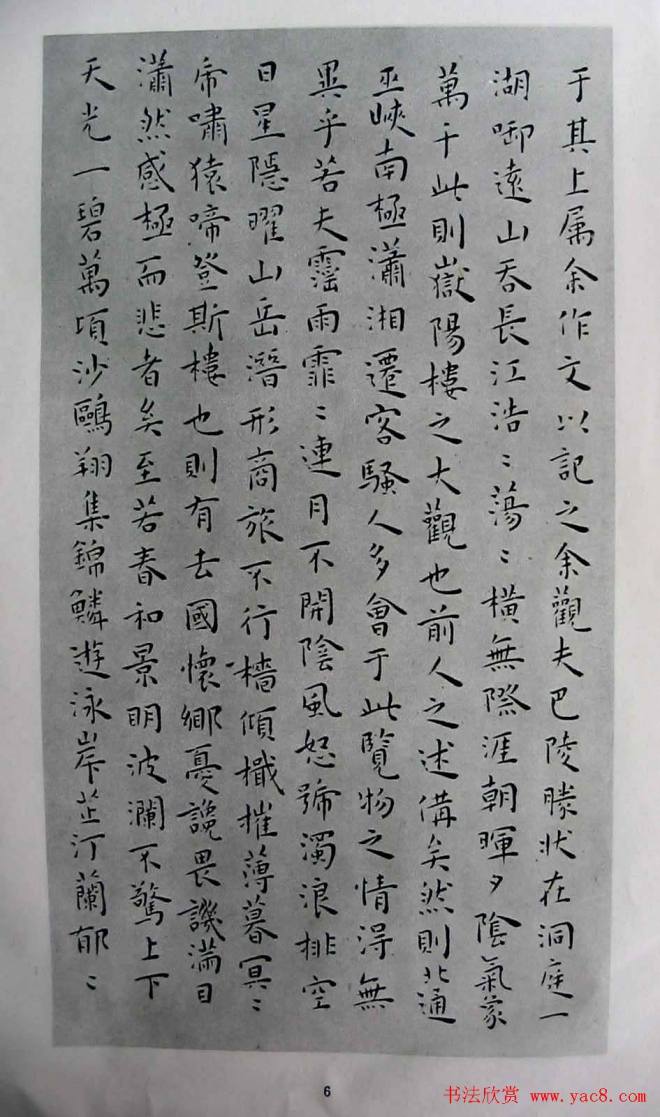 于其上属余作文以記之余觀夫巴陵勝狀在洞庭一
湖啣遠山吞長江浩〻蕩〻橫無際涯朝暉夕陰氣象
萬千此則嶽陽樓之大觀也前人之述備矣然則北通
巫峽南極瀟湘遷客騷人多會于此覽物之情得無
異乎若夫霪雨霏〻連月不開陰風怒號濁浪排空
日星隱曜山岳潛形商旅不行檣傾檝摧薄暮冥〻
帝嘯猿啼登斯樓也則有去國懷鄉憂讒畏譏滿目
瀟然感極而悲者矣至若春和景明波瀾不驚上下
天光一碧萬頃沙鷗翔集錦鱗遊泳岸芷汀蘭郁〻
6
书法欣赏 www.yac8.com